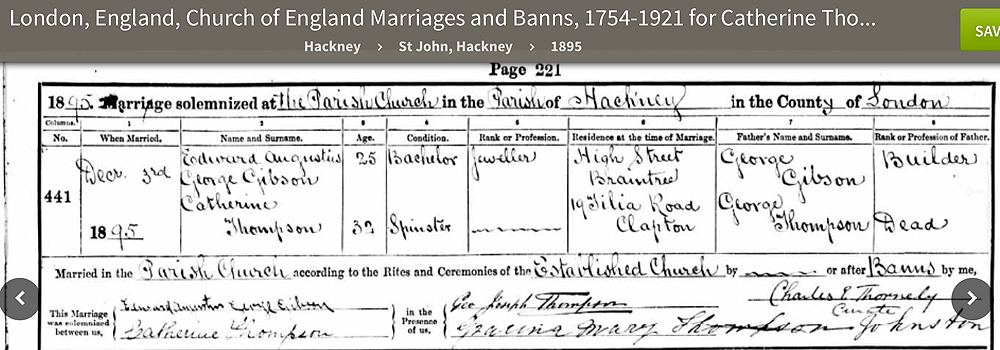 London, England, Church of England Marriages and Banns, 1754-1921 for Catherine Tho...
SAV
Hackney > St John, Hackney > 1895
Page 221
1895. Marriage solemnized at the Parish Church in the Parish of Hackney in the County of London
Columns. 1 2 3 4 5 6 7 8
No. When Married. Name and Surname. Age. Condition. Rank or Profession. Residence at the time of Marriage. Father's Name and Surname. Rank or Profession of Father.
441 Decr. 3rd 1895
Edward Augustus
George Gibson
25 Bachelor Jeweller
High Street
Braintree
George
Gibson
Builder
Catherine
Thompson
32 Spinster
19 Tilia Road
Clapton
George
Thompson
Dead
Married in the Parish Church according to the Rites and Ceremonies of the Established Church by or after Banns by me,
This Marriage was solemnized between us,
Edward Augustus George Gibson
Catherine Thompson
in the Presence of us,
Geo Joseph Thompson
Mary Thompson Johnston
Charles E Thornely
Curate